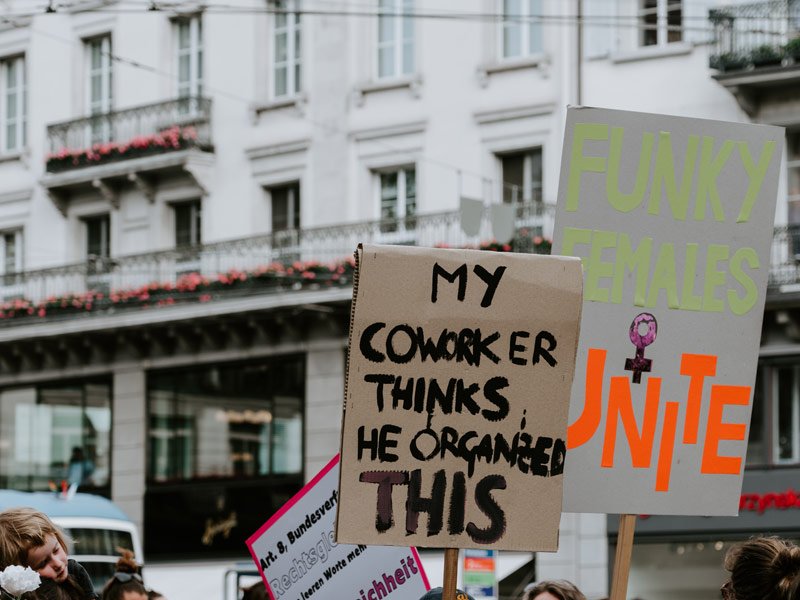 MY
COWORKER
THINKS
HE ORGANIZED
THIS
FUNKY
FEMALES
UNITE
Art. 8, Bundesverf
Rechtsgle
leeren Worte mehr
eichheit